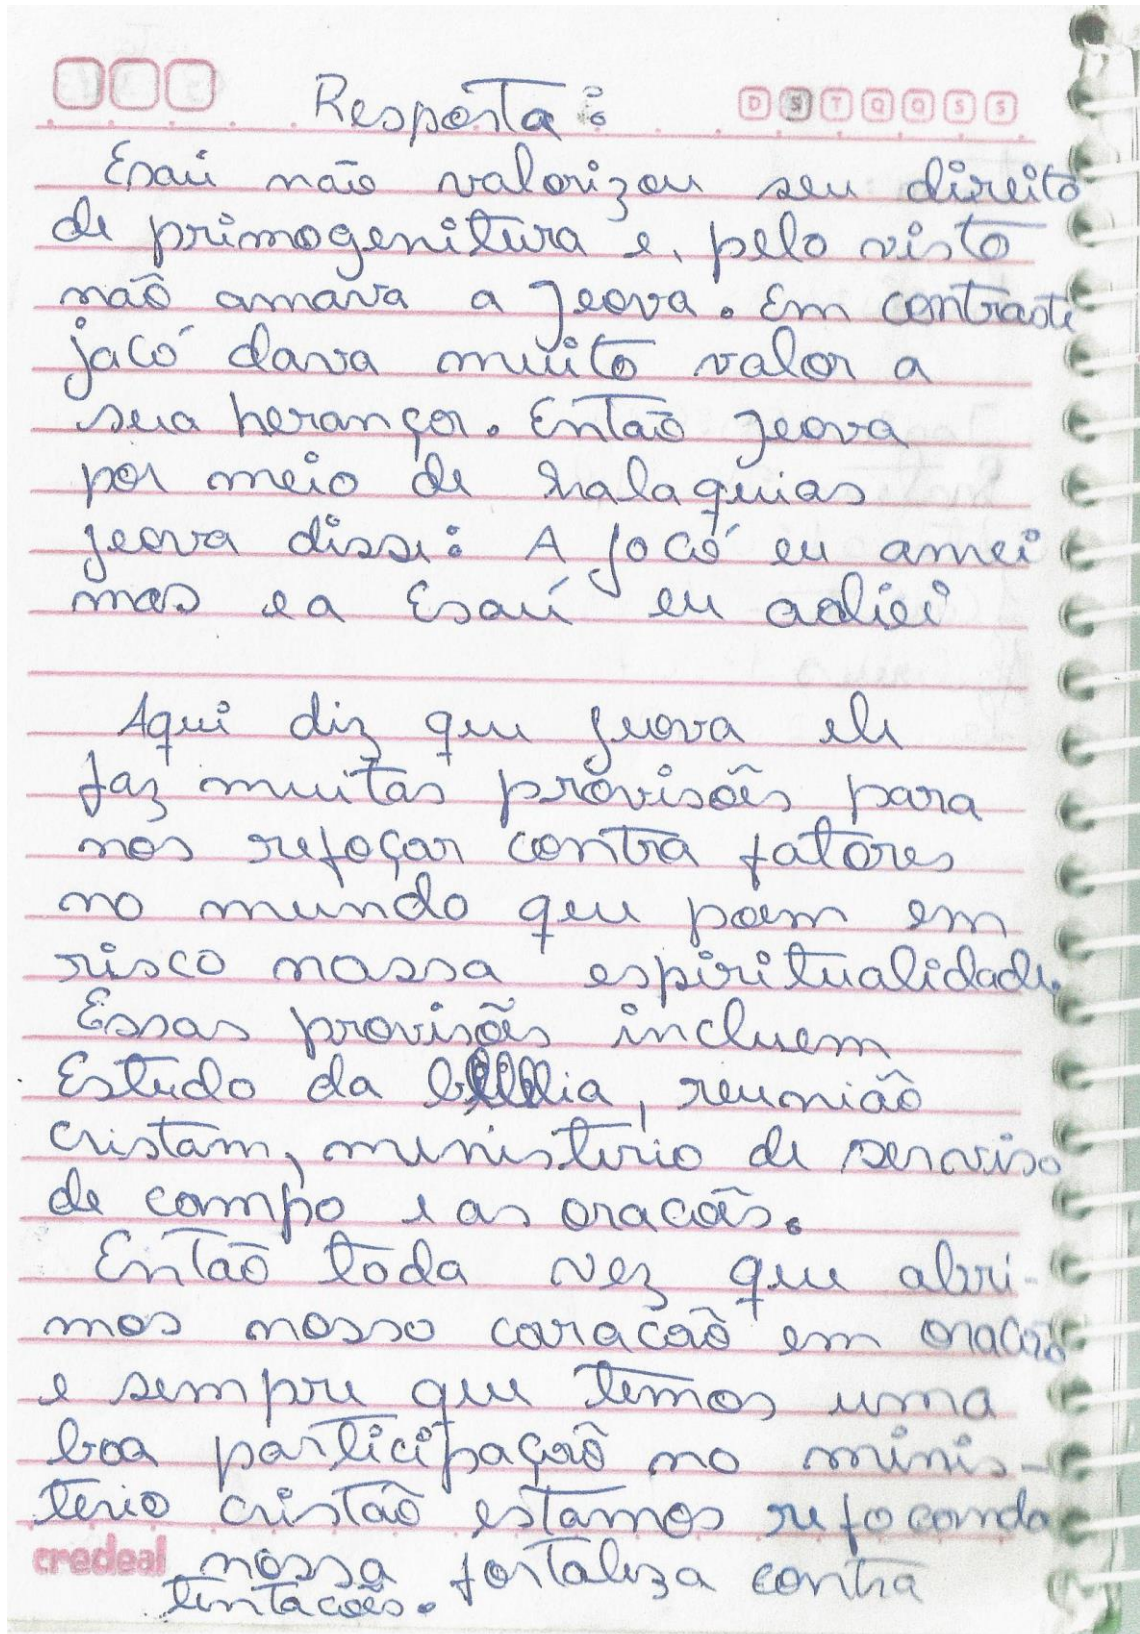 Resposta:
D S T Q Q S S
Esaú não valorizou seu direito
de primogenitura e, pelo visto
não amava a Jeova. Em contraste
jacó dava muito valor a
sua herança. Então Jeova
por meio de Malaquias
jeova disse: A Jacó eu amei
mas e a Esaú eu odiei
Aqui diz que Jeova ele
faz muitas provisões para
nos refoçar contra fatores
no mundo qeu poem em
risco nossa espiritualidade.
Essas provisões incluem
Estudo da biblia, reunião
cristam, ministerio de serviso
de campo e as oracões.
Então toda vez que abri-
mos nosso coracaõ em oracaõ
e sempre que temos uma
boa participaçaõ no minis-
terio cristaõ estamos refocando
credeal nossa fortaleza contra
tentacoẽs.